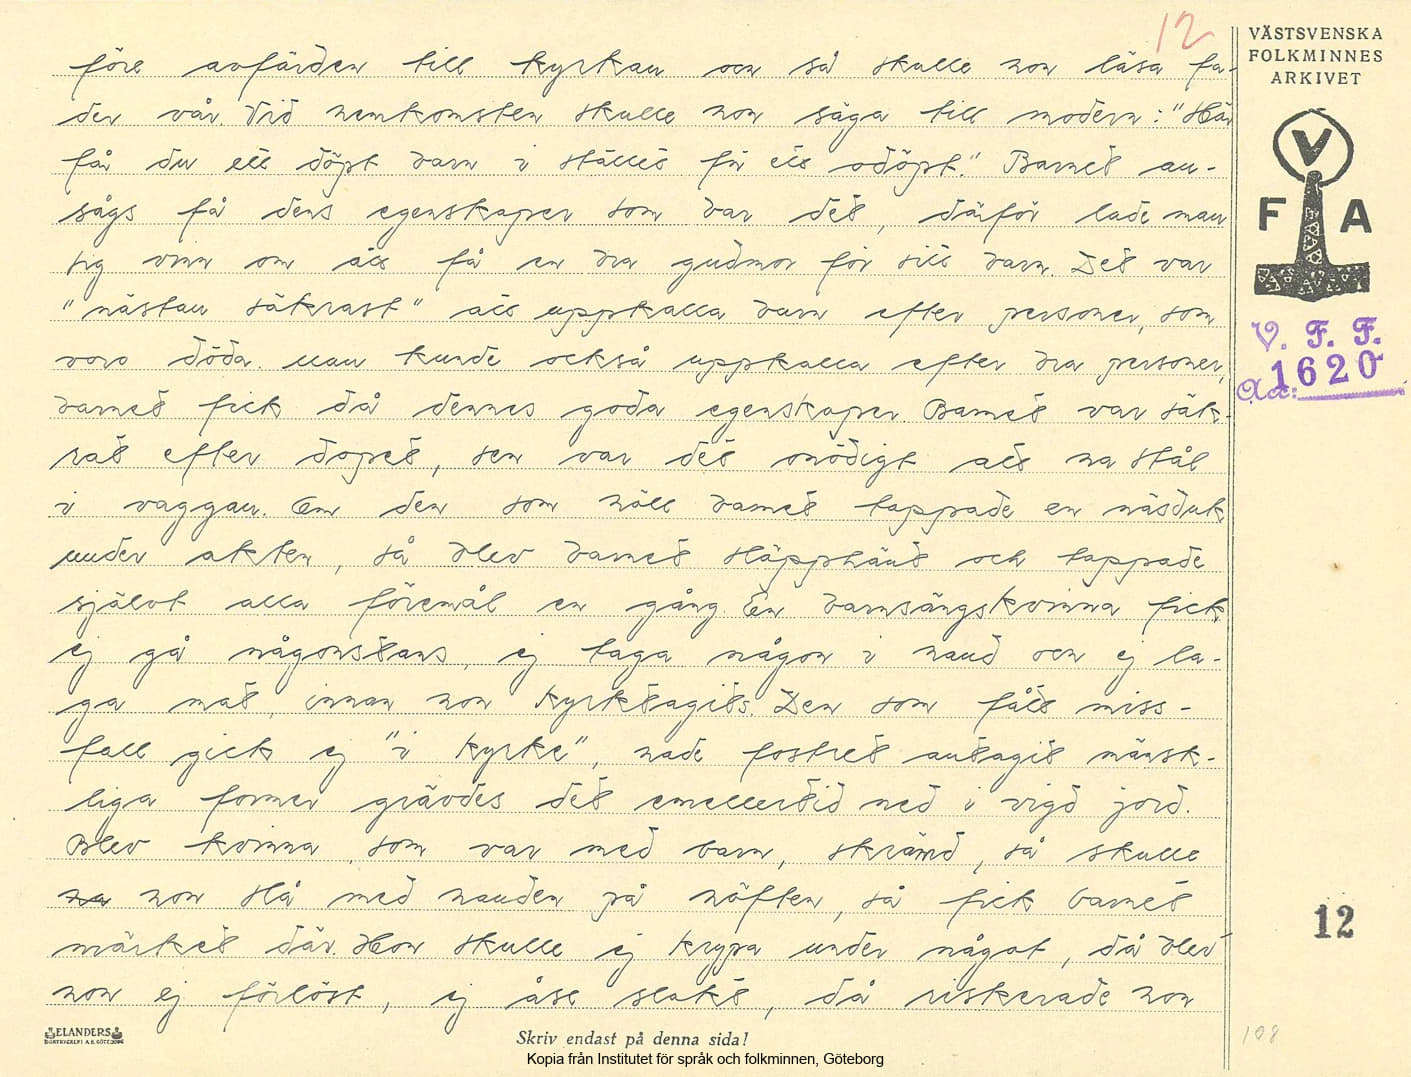 12
VÄSTSVENSKA
FOLKMINNES
ARKIVET
före avfärden till kyrkan och så skulle hon läsa fa-
der vår. Vid hemkomsten skulle hon säga till modern: "Här
får du ett döpt barn i stället för ett odöpt." Barnet an-
sågs få dens egenskaper som bar det, därför lade man
sig vinn om att få en bra gudmor för sitt barn. Det var
"nästan säkrast" att uppkalla barn efter personer, som
voro döda. Man kunde också uppkalla efter bra personer,
barnet fick då dennes goda egenskaper. Barnet var säk-
rat efter dopet, sen var det onödigt att ha stål
i vaggan. Om den som höll barnet tappade en näsduk
under akten, så blev barnet släpphänt och tappade
självt alla föremål en gång. En barnsängskvinna fick
ej gå någonstans, ej taga någon i hand och ej la-
ga mat, innan hon kyrktagits. Den som fått miss-
fall gick ej "i kyrke", hade fostret antagit mänsk-
liga former grävdes det emellertid ned i vigd jord.
Blev kvinna, som var med barn, skrämd, så skulle
ha hon slå med handen på höften, så fick barnet
märket där. Hon skulle ej krypa under något, då blev
hon ej förlöst, ej åse slakt, då riskerade hon
V
F A
V. F. F.
Acc: 1620
12
108
ELANDERS
BOKTRYCKERI A.B. GÖTEBORG
Skriv endast på denna sida!
Kopia från Institutet för språk och folkminnen, Göteborg